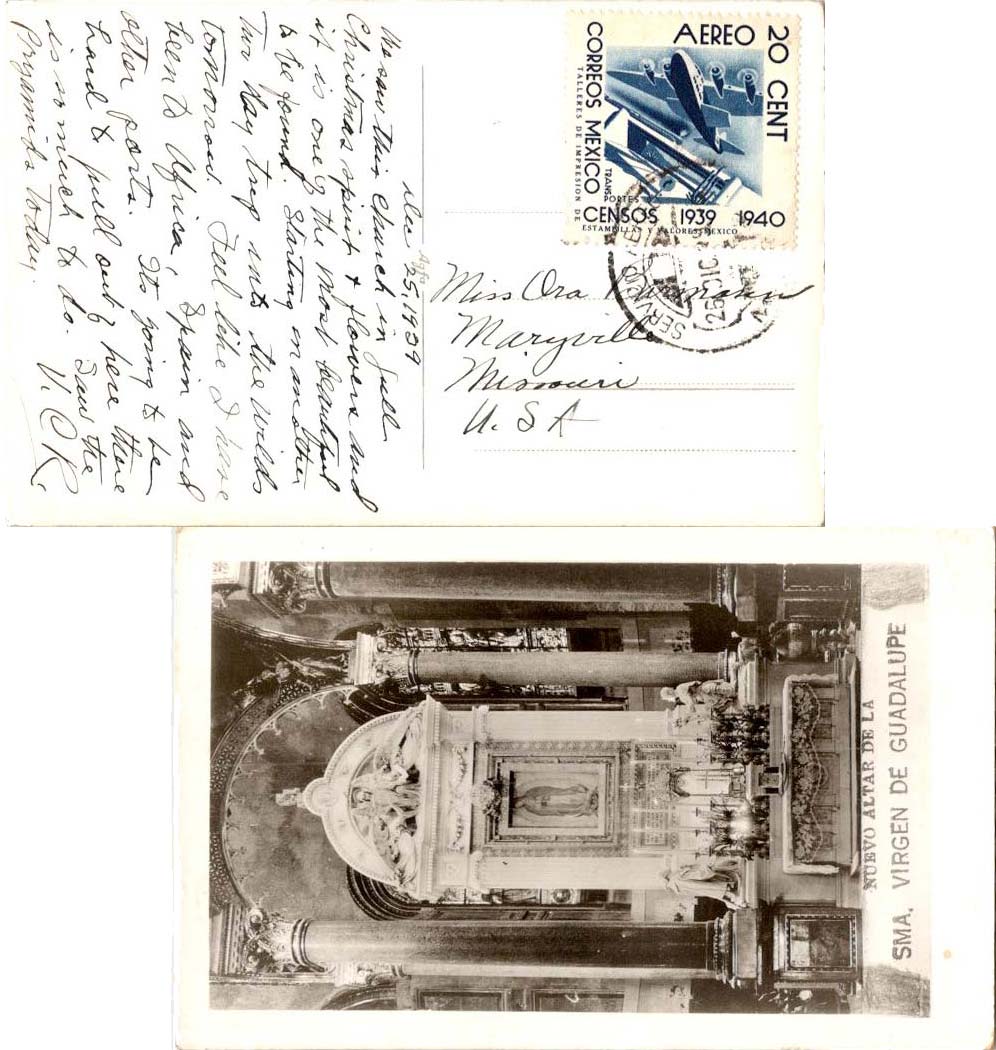 Dec 25, 1939
We saw this church in full
Christmas spirit & flowers and
it is one of the most beautiful
to be found. Starting in another
two day trip into the wilds
tomorrow. Feel like I have
been to Africa, Spain and
other ports. Its going to be
hard to pull out of here there
is so much to do. Saw the
Pryamids today. V. C R.
Agfa
AEREO 20 CENT
CORREOS MEXICO
TALLERES DE IMPRESION DE
ESTAMPILLAS Y VALORES-MEXICO
TRANS.
PORTES
CENSOS 1939 1940
25 DIC
Miss Ora
Maryville
Missouri
U. S A
NUEVO ALTAR DE LA
SMA. VIRGEN DE GUADALUPE